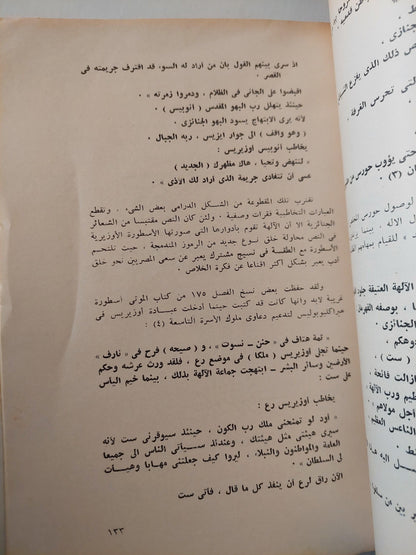 اذ سرى بينهم القول بأن من أراد له السوء قد اقترف جريمته فى
القصر .
اقبضوا على الجانى فى الظلام ، ودمروا زمرته » .
حينئذ يتهلل رب البهو المقدس ( أنوبيس )
لأنه يرى الابتهاج يسود البهو الجنائزى .
( وهو واقف ) الى جوار ايزيس ، ربة الجبال .
يخاطب أنوبيس أوزيريس :
« لتنهض وتحيا ، هاك مظهرك ( الجديد )
عسى أن تتفادى جريمة الذى أراد لك الأذى » .
تقترب تلك المقطوعة من الشكل الدرامى بعض الشىء ، وتقطع
العبارات التخاطبية فقرات وصفية ، ولئن كان النص مقتبسا من الشعائر
الجنائزية الا أن الآلهة تقوم بأدوارها التى صورتها الأسطورة الأوزيرية
فى النص محاولة خلق نوع جديد من الرموز المندمجة ، حيث تلتحم
الأسطورة مع الطقسة فى نسيج مشترك يعبر عن سعى المصريين نحو خلق
أدب يعبر بشكل أكثر اقناعا عن فكرة الخلاص .
ولقد حفظت بعض نسخ الفصل ١٧٥ من كتاب الموتى أسطورة
غريبة لابد وأنها كانت قد كتبت حينما أدخلت عبادة أوزيريس فى
هيراكليوبوليس لتدعيم دعاوى ملوك الأسرة التاسعة (٤) :
« ثمة هتاف فى « حنن - نسوت » ، و ( صيحة ) فرح فى « نارف »
حينما تجلى أوزيريس ( ملكا ) فى موضع رع ، فلقد ورث عرشه وحكم
الأرضين وسائر البشر - ابتهجت جماعة الآلهة بذلك ، بينما خيم اليأس
على ست » .
يخاطب أوزيريس رع :
« أود لو تمنحنى ملك رب الكون ، حينئذ سيوقرنى ست لأنه
سيرى هيئتى مثل هيئتك ، وعندئذ سيأتى الناس الى جميعا
العامة والمواطنون والنبلاء ، ليروا كيف جعلتنى مهابا وهيأت
لى السلطان » .
الآن راق لرع أن ينفذ كل ما قال ، فأتى ست
١٣٣